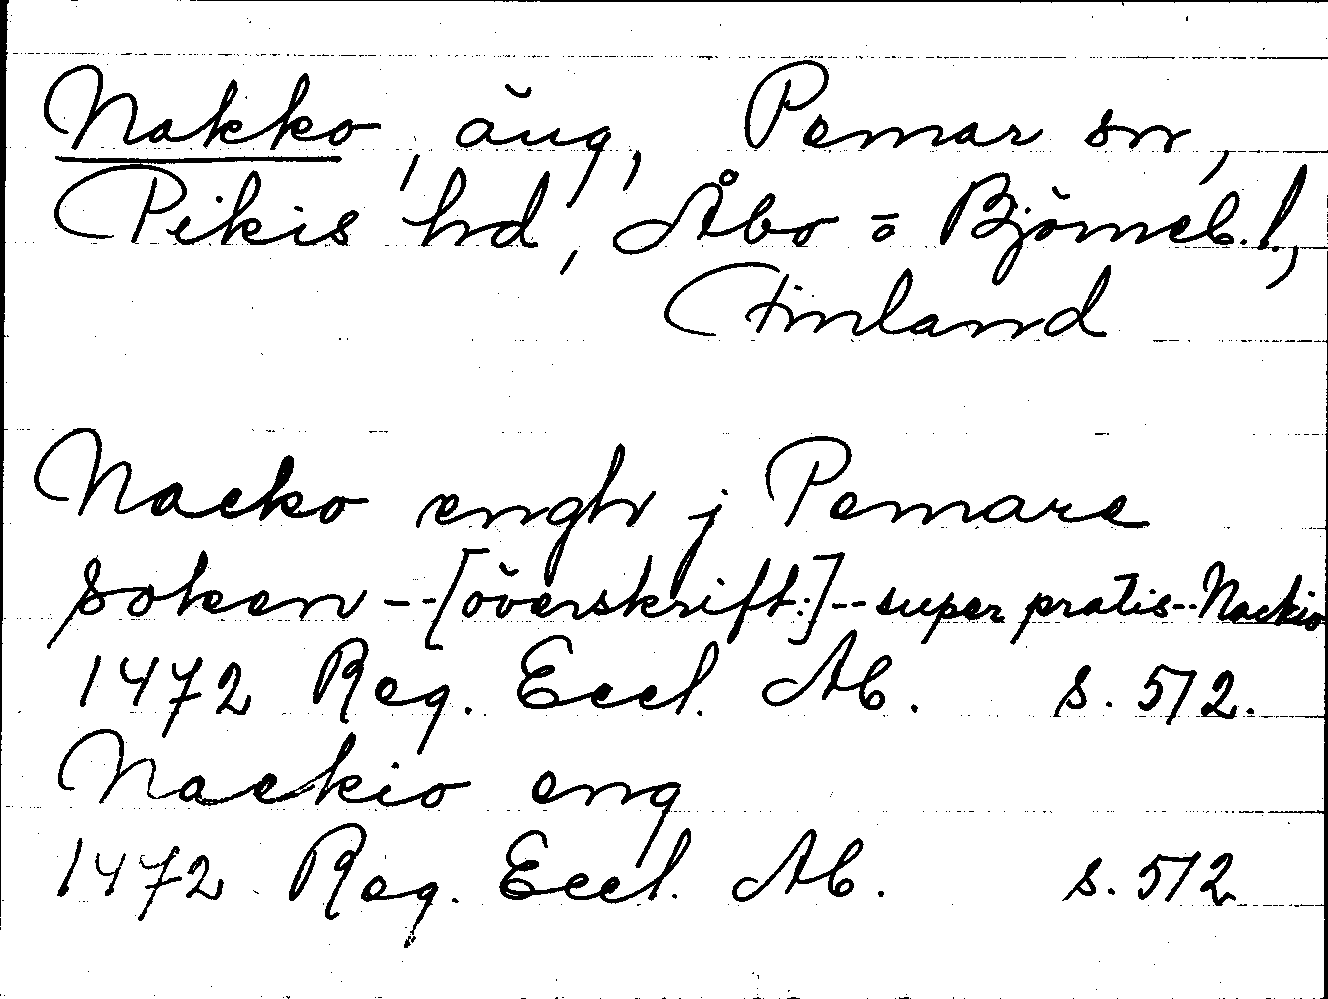 Nakko, äng, Pemar sn,
Pikis hd, Åbo = Björneb. l.,
Finland
Nacko ængh j Pemare
soken -- [överskrift:] -- super pratis -- Nackio
1472 Reg. Eccl. Ab. s. 512.
Nackio eng
1472 Reg. Eccl. Ab. s. 512